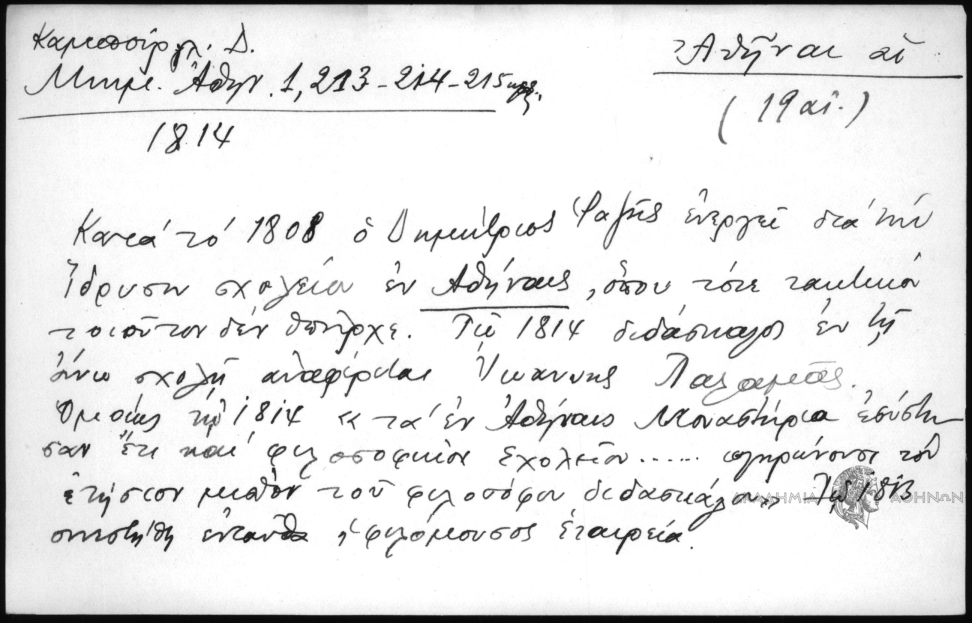 Καμπούρογλ. Δ.
Μνημ. Ἀθην. 1, 213-214-215
1814
Ἀθῆναι αἱ
(19 αἰ.)
Κατά τό 1808 ὁ Δημήτριος ἐνεργεῖ διά τήν
ἵδρυσιν σχολείου ἐν Ἀθήναις, ὅπου τότε τακτικόν
τοιοῦτον δέν ὑπῆρχε. Τῷ 1814 διδάσκαλος ἐν τῇ
ἄνω σχολῇ ἀναφέρεται Ἰωάννης Παλαμᾶς.
Ὁμοίως τῷ 1814 « τά ἐν Ἀθήναις Μοναστήρια ἐσύστη
σαν ἔτι καί φιλοσοφικόν σχολεῖον ...... πληρώνουσι τόν
ἐτήσιον μισθόν τοῦ φιλοσόφου διδασκάλου» Τῷ 1813
συνεστήθη ἐνταῦθα ἡ φιλόμουσος ἑταιρεία.
ΑΚΑΔΗΜΙΑ ΑΘΗΝΩΝ